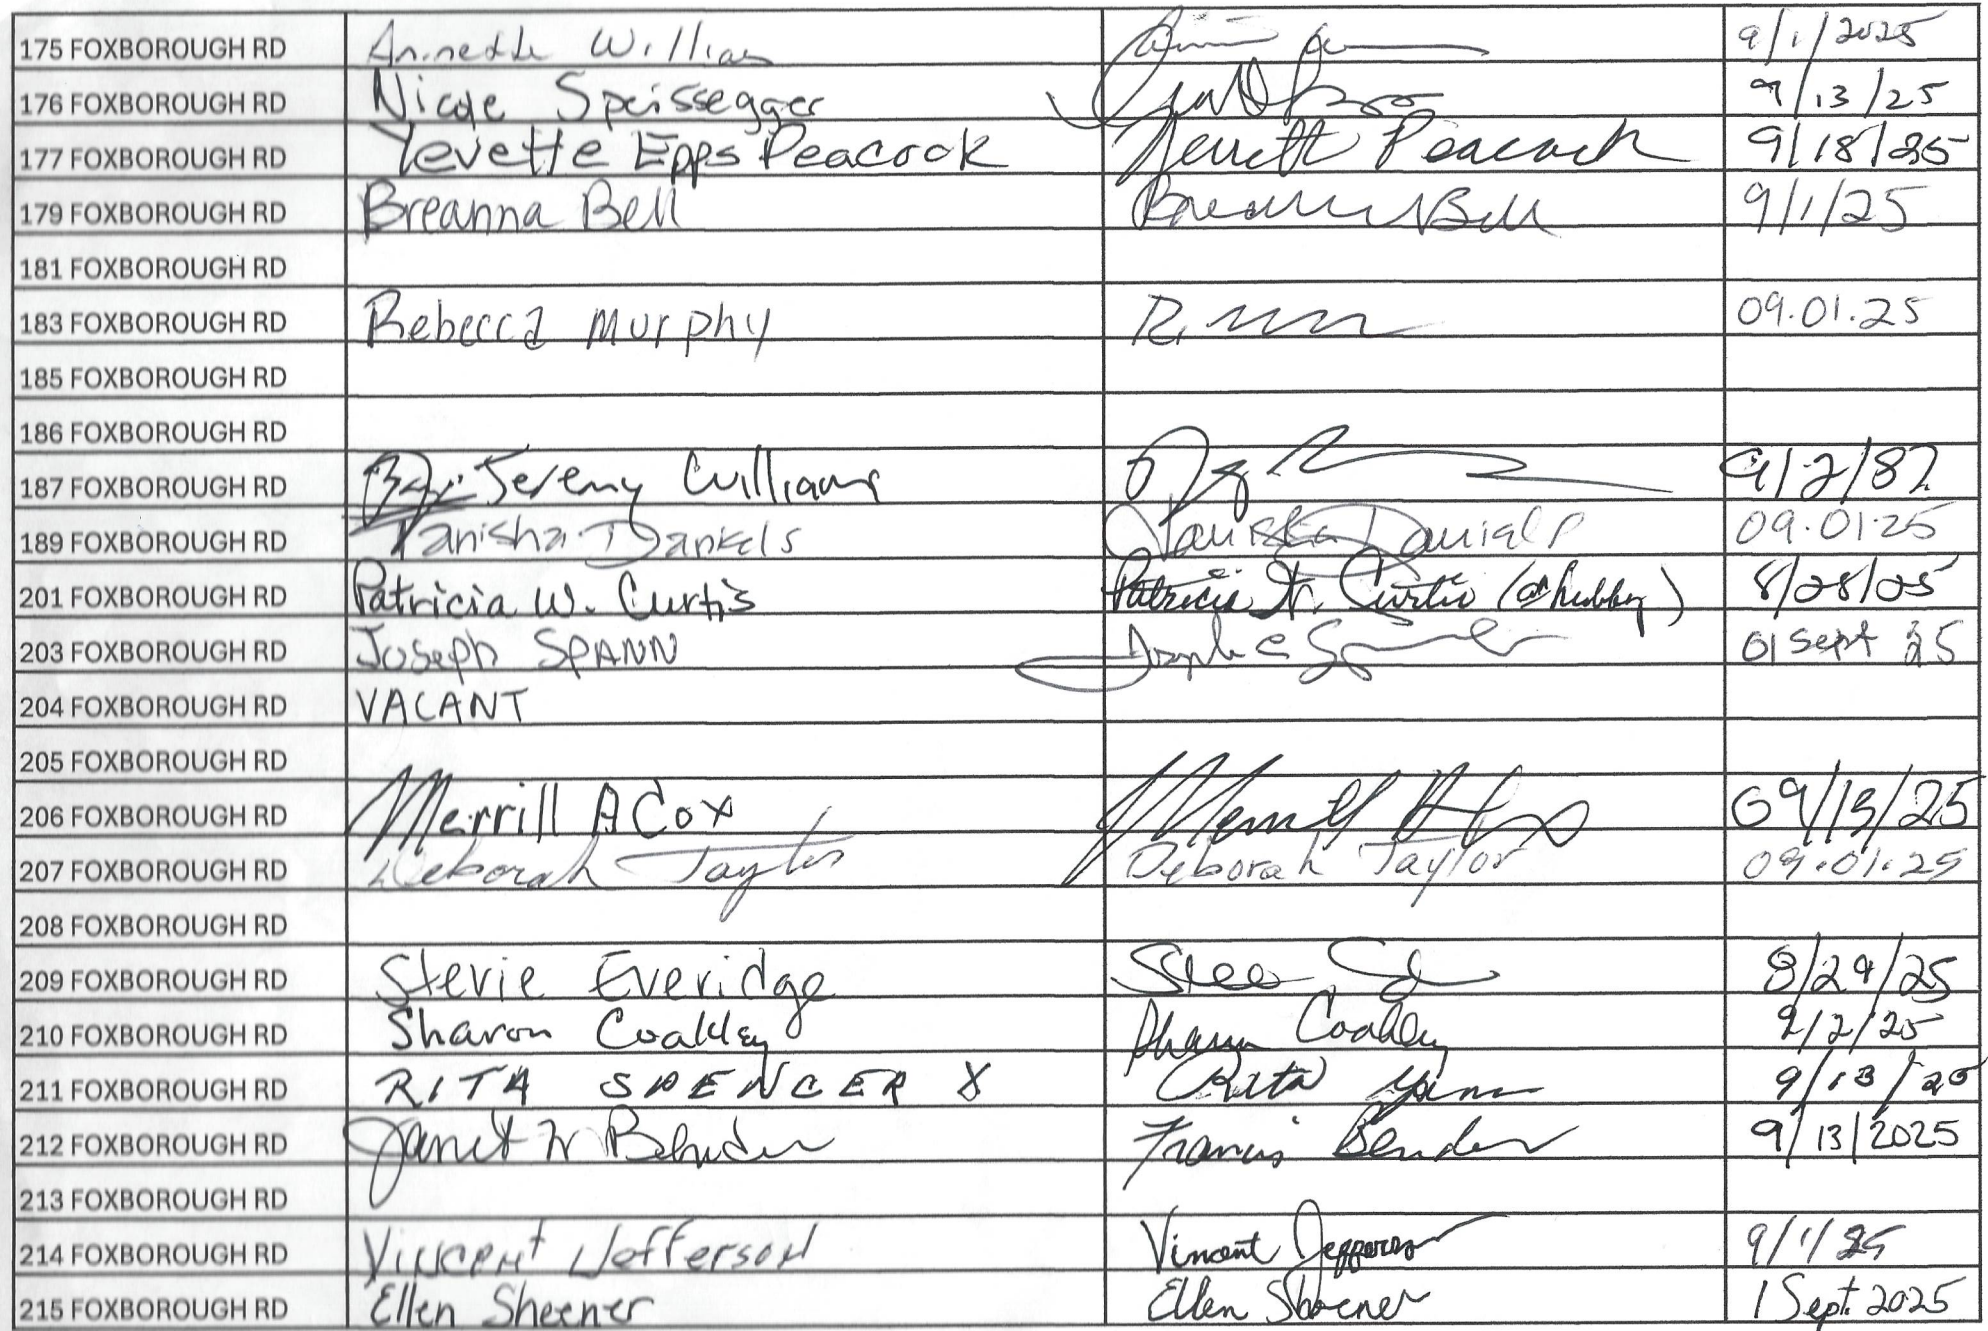 175 FOXBOROUGH RD Annette William 9/1/2025
176 FOXBOROUGH RD Nicole Speissegger 9/13/25
177 FOXBOROUGH RD Yevette Epps Peacock Peacock 9/18/25
179 FOXBOROUGH RD Breanna Bell Breanna Bell 9/1/25
181 FOXBOROUGH RD
183 FOXBOROUGH RD Rebecca Murphy R. 09.01.25
185 FOXBOROUGH RD
186 FOXBOROUGH RD
187 FOXBOROUGH RD Jeremy Williams 9/2/82
189 FOXBOROUGH RD Tanisha Daniels Tanisha Daniels 09.01.25
201 FOXBOROUGH RD Patricia W. Curtis Patricia W. Curtis 8/28/25
203 FOXBOROUGH RD Joseph SPANN Joseph C 01 Sept 25
204 FOXBOROUGH RD VACANT
205 FOXBOROUGH RD
206 FOXBOROUGH RD Merrill A Cox Merrill A Cox 09/13/25
207 FOXBOROUGH RD Deborah Taylor Deborah Taylor 09.01.25
208 FOXBOROUGH RD
209 FOXBOROUGH RD Stevie Everidge 8/29/25
210 FOXBOROUGH RD Sharon Coakley Sharon Coakley 9/2/25
211 FOXBOROUGH RD RITA SPENCER X Rita 9/13/25
212 FOXBOROUGH RD Janet Francis Bender 9/13/2025
213 FOXBOROUGH RD
214 FOXBOROUGH RD Vincent Jefferson Vincent Jefferson 9/1/25
215 FOXBOROUGH RD Ellen Sheener Ellen 1 Sept. 2025